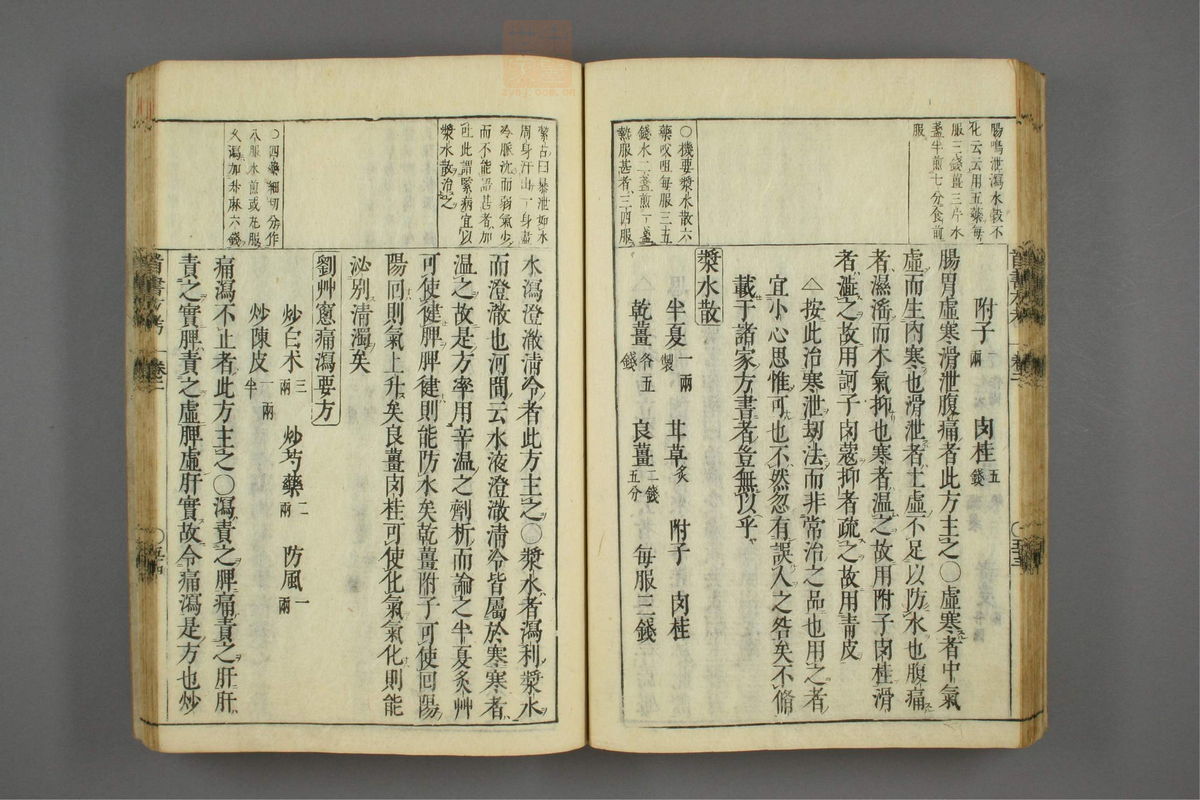 腸鳴泄瀉水穀不
化云云用五藥每
服三錢薑三片水
盞半煎七分食前
服
附子兩 肉桂五錢
腸胃虛寒滑泄腹痛者此方主之○虛寒者中氣
虛而生內寒也滑泄者土虛不足以防水也腹痛
者濕淫而木氣抑也寒者温之故用附子肉桂滑
者澁之故用訶子肉蔻抑者疏之故用青皮
△按此治寒泄刼法而非常治之品也用之者
宜小心思惟可也不然忽有誤人之咎矣不脩
載于諸家方書者豈無以乎
○機要漿水散六
藥㕮咀每服三五
錢水二盞煎一盞
熱服甚者三四服
漿水散
半夏一兩製 甘草炙 附子 肉桂
乾薑各五錢 良薑二錢五分 每服三錢
潔古曰暴泄如水
周身汗出一身盡
冷脈沈而弱氣少
而不能語甚者加
吐此謂緊病宜以
漿水散治之
水瀉澄澈清冷者此方主之○漿水者瀉利漿水
而澄澈也河間云水液澄澈清冷皆屬於寒寒者
温之故是方率用辛温之劑析而論之半夏炙艸
可使健脾脾健則能防水矣乾薑附子可使回陽
陽回則氣上升矣良薑肉桂可使化氣氣化則能
泌别清濁矣
○四藥細切分作
八服水煎或丸服
久瀉加升麻六錢
劉艸窻痛瀉要方
炒白朮三兩 炒芍藥二兩 防風一兩
炒陳皮一兩半
痛瀉不止者此方主之○瀉責之脾痛責之肝肝
責之實脾責之虛脾虛肝實故令痛瀉是方也炒